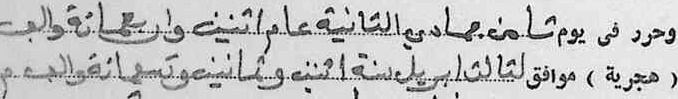 وحرر في يوم ثامن جمادي الثانية عام اثنين وأربعمائة والف
( هجرية ) موافق لثالث ابريل سنة اثنين وثمانين وتسعمائة والف م